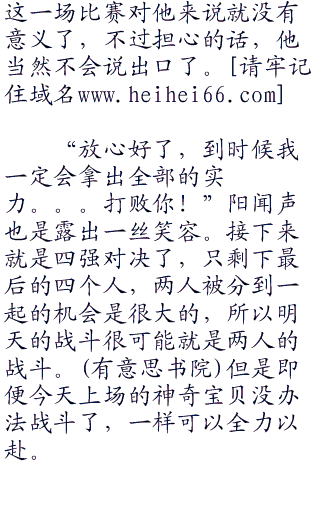 这一场比赛对他来说就没有
意义了，不过担心的话，他
当然不会说出口了。[请牢记
住域名www.heihei66.com]
“放心好了，到时候我
一定会拿出全部的实
力。。。打败你！”阳闻声
也是露出一丝笑容。接下来
就是四强对决了，只剩下最
后的四个人，两人被分到一
起的机会是很大的，所以明
天的战斗很可能就是两人的
战斗。(有意思书院)但是即
便今天上场的神奇宝贝没办
法战斗了，一样可以全力以
赴。